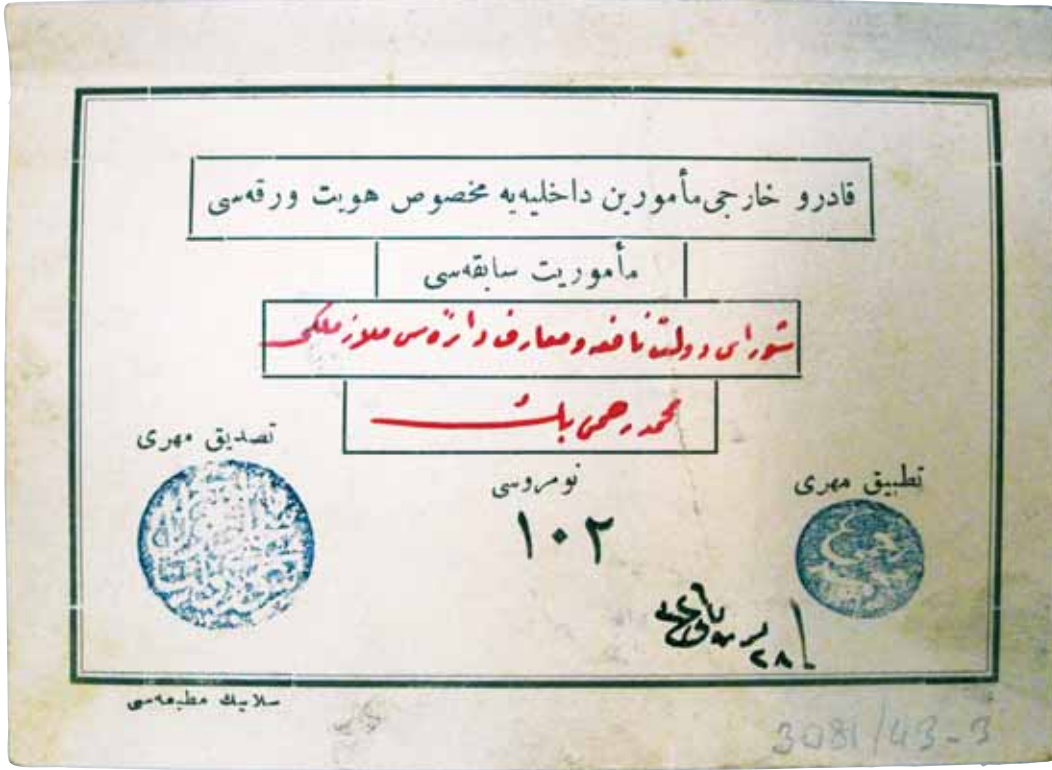 قادرو خارجی مأمورین داخلیه‌یه مخصوص هویت ورقه‌سی
مأموریت سابقه‌سی
شورای دولت نافعه و معارف دائره‌سی ملازملكی
محمد رحمی بك
تطبیق مهری
نومروسی
تصدیق مهری
١٠٢
٢٨
سلانیك مطبعه‌سی
3081/43-3